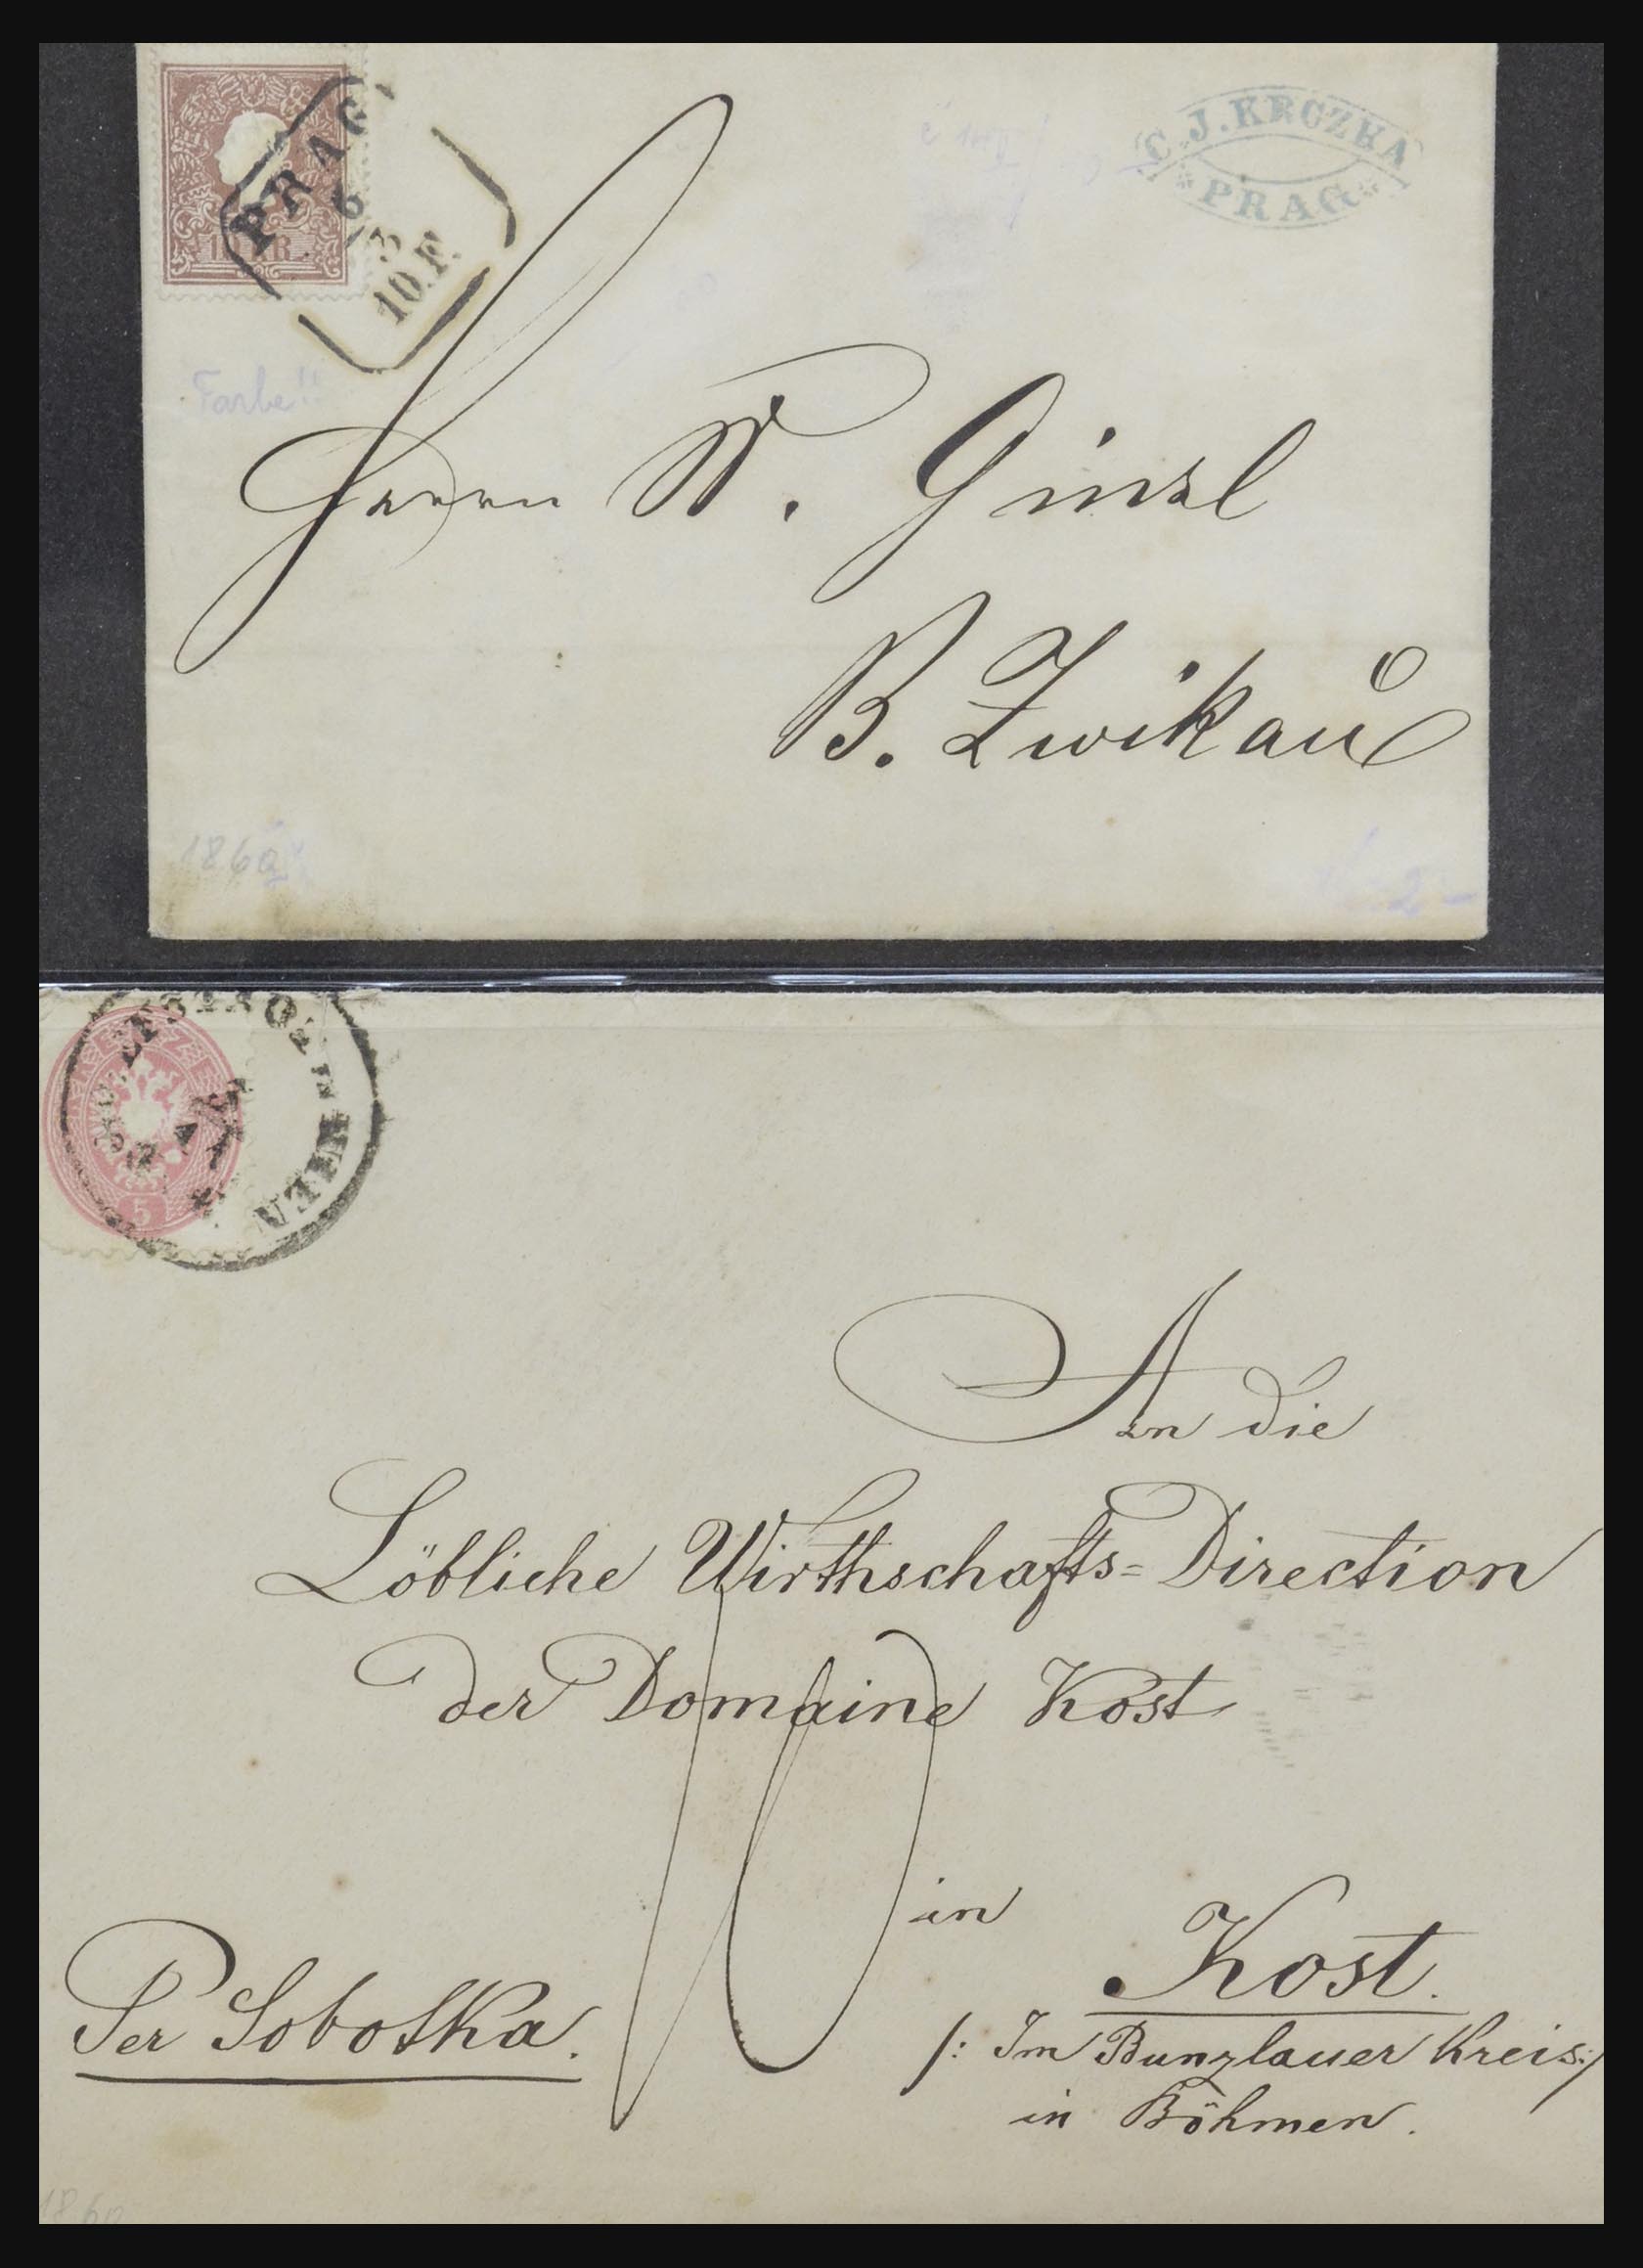 PRAG
6
3
10.F.
10 KR
C.J.KRCZHA
PRAG
Farbe!!
Herrn W. Ginzl
B. Zwikau
1860
2
WIEN
5
An die
Löbliche Wirthschafts=Direction
der Domaine Kost
in
Kost.
Per Sobotka.
/: Im Bunzlauer Kreis:/
in Böhmen.
1860